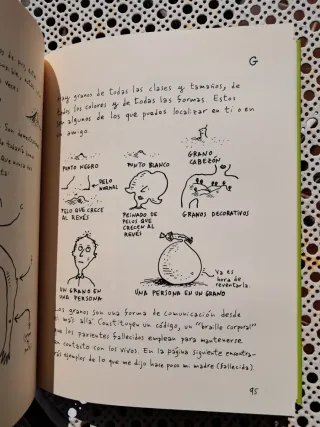 G
Hay granos de todas las clases y tamaños, de
todos los colores y de todas las formas. Estos
son algunos de los que puedes localizar en ti o en
un amigo.
PUNTO NEGRO
PUNTO BLANCO
GRANO
CABEZÓN
PELO
NORMAL
PELO QUE CRECE
AL REVÉS
PEINADO DE
PELOS QUE
CRECEN AL
REVÉS
GRANOS DECORATIVOS
UN GRANO EN
UNA PERSONA
UNA PERSONA EN UN GRANO
Ya es
hora de
reventarla.
Los granos son una forma de comunicación desde
el más allá. Constituyen un código, un "braille corporal"
que los parientes fallecidos emplean para mantenerse
en contacto con los vivos. En la página siguiente encontra-
rás ejemplos de lo que me dijo hace poco mi madre (fallecida).
95